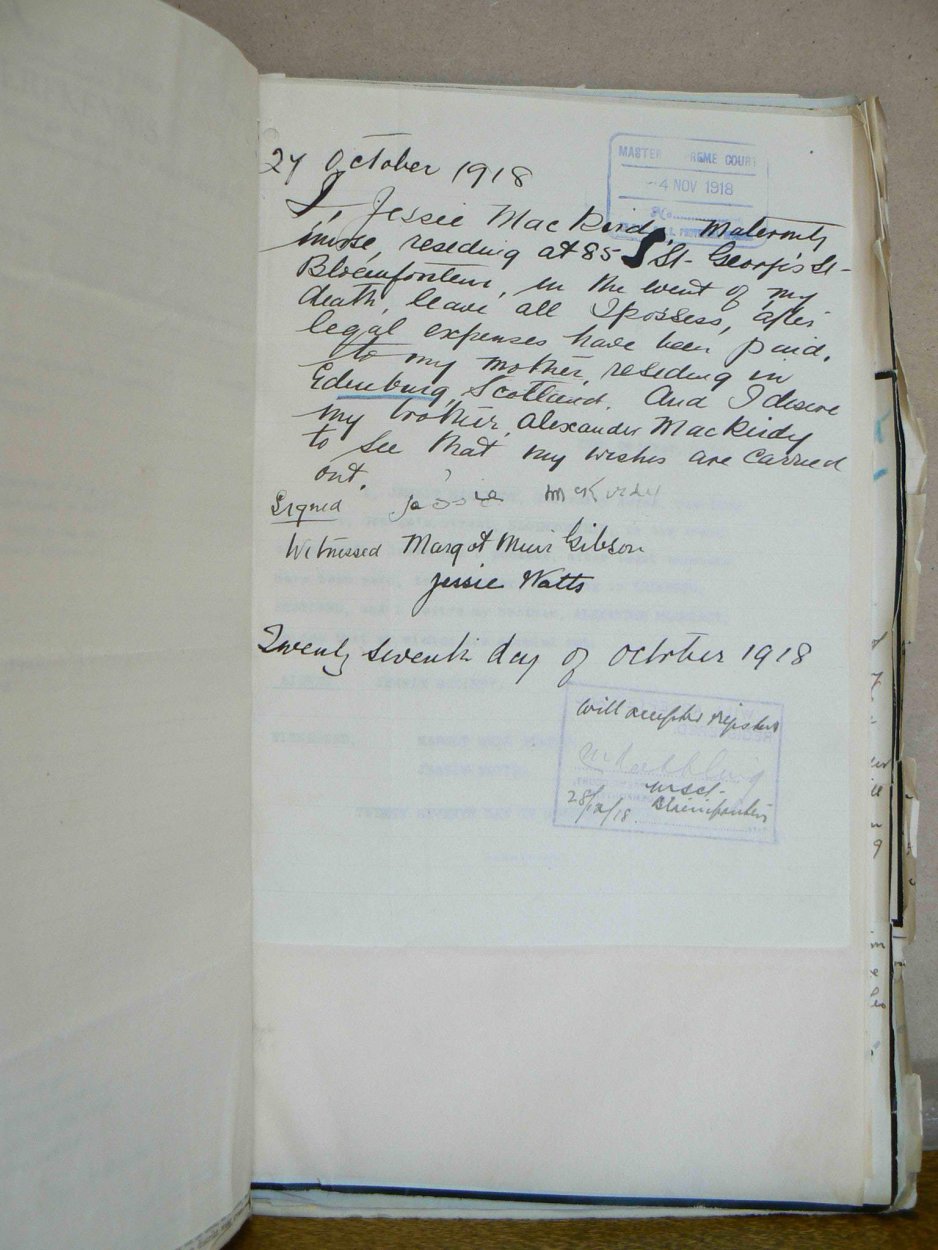 27 October 1918
MASTER SUPREME COURT
-4 NOV 1918
I, Jessie MacKirdy, Maternity
nurse, residing at 85 St. George's St-
Bloemfontein, in the event of my
death, leave all I possess, after
legal expenses have been paid,
to my mother, residing in
Edenburg, Scotland. And I desire
my brother, Alexander MacKirdy
to see that my wishes are carried
out.
Signed Jessie McKirdy
Witnessed Margot Muir Gibson
Jessie Watts
Twenty seventh day of October 1918
Will accepted registered
28/12/18
Bloemfontein